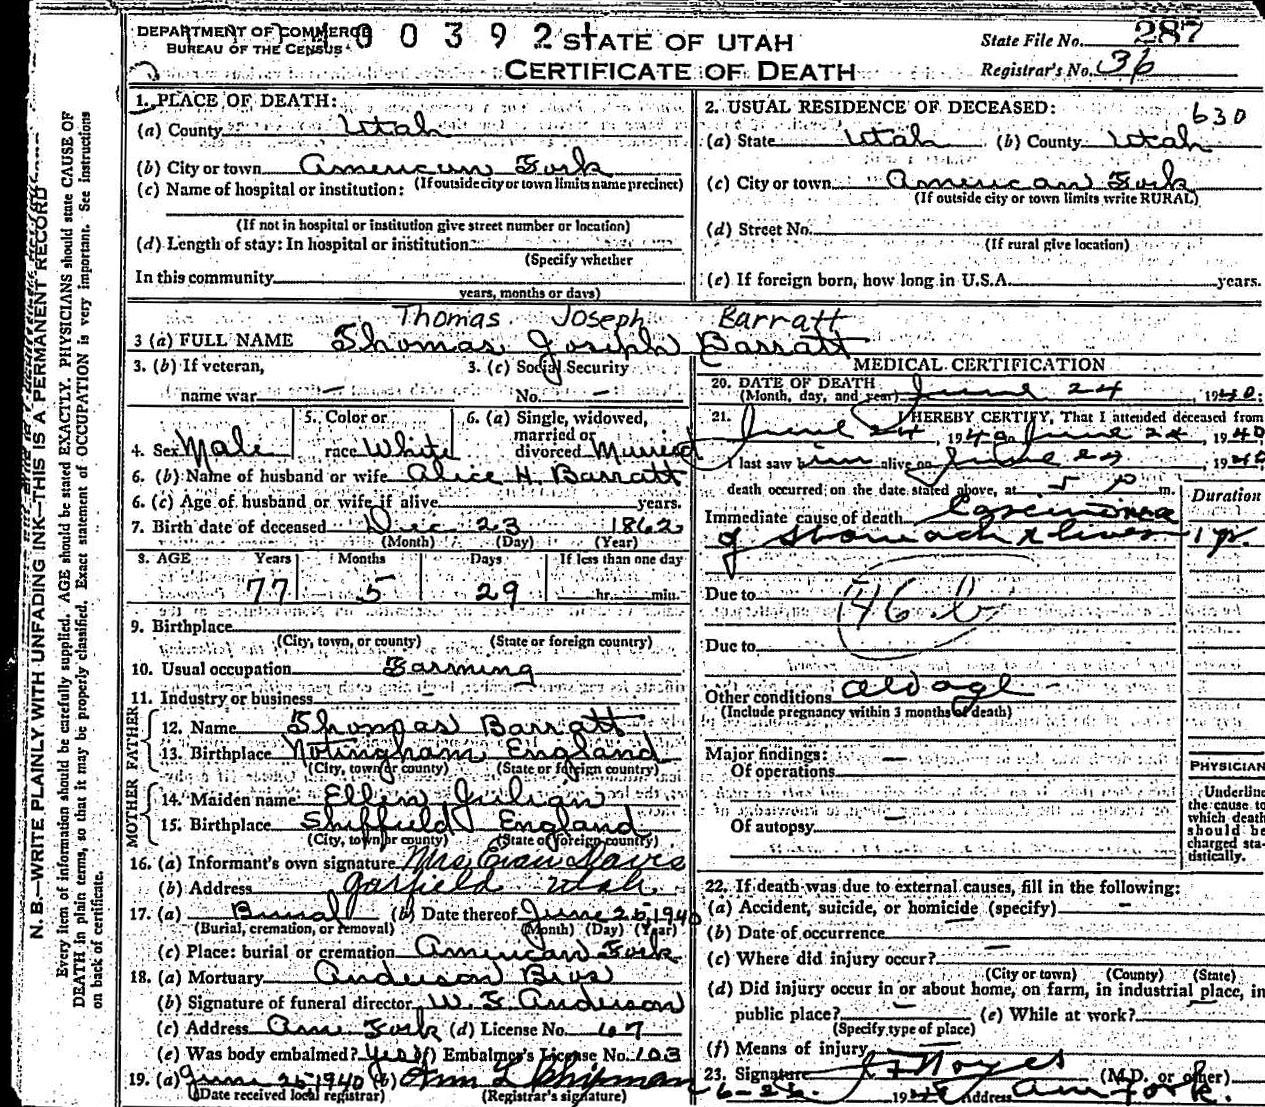 DEPARTMENT OF COMMERCE
BUREAU OF THE CENSUS
0 0 3 9 2
STATE OF UTAH
CERTIFICATE OF DEATH
State File No. 287
Registrar's No. 36
N. B.—WRITE PLAINLY WITH UNFADING INK—THIS IS A PERMANENT RECORD
Every item of information should be carefully supplied. AGE should be stated EXACTLY. PHYSICIANS should state CAUSE OF
DEATH in plain terms, so that it may be properly classified. Exact statement of OCCUPATION is very important. See instructions
on back of certificate.
1. PLACE OF DEATH:
(a) County Utah
(b) City or town American Fork
(If outside city or town limits name precinct)
(c) Name of hospital or institution:
(If not in hospital or institution give street number or location)
(d) Length of stay: In hospital or institution
(Specify whether
In this community
years, months or days)
2. USUAL RESIDENCE OF DECEASED:
630
(a) State Utah (b) County Utah
(c) City or town American Fork
(If outside city or town limits write RURAL)
(d) Street No.
(If rural give location)
(e) If foreign born, how long in U.S.A. years.
Thomas Joseph Barratt
3 (a) FULL NAME Thomas Joseph Barratt
3. (b) If veteran, 3. (c) Social Security
name war — No. —
4. Sex Male
5. Color or
race White
6. (a) Single, widowed,
married or
divorced Married
6. (b) Name of husband or wife Alice H. Barratt
6. (c) Age of husband or wife if alive years.
7. Birth date of deceased Dec 23 1862
(Month) (Day) (Year)
8. AGE Years Months Days If less than one day
77 5 29 hr. min.
9. Birthplace
(City, town, or county) (State or foreign country)
10. Usual occupation Farming
11. Industry or business —
FATHER
12. Name Thomas Barratt
13. Birthplace Notingham England
(City, town or county) (State or foreign country)
MOTHER
14. Maiden name Ellen Julian
15. Birthplace Shiffield England
(City, town or county) (State or foreign country)
16. (a) Informant's own signature Mrs Evan Davis
(b) Address Garfield Utah
17. (a) Burial (b) Date thereof June 26, 1940
(Burial, cremation, or removal) (Month) (Day) (Year)
(c) Place: burial or cremation American Fork
18. (a) Mortuary Anderson Bros
(b) Signature of funeral director W. F. Anderson
(c) Address Am. Fork (d) License No. 67
(e) Was body embalmed? Yes (f) Embalmer's License No. 103
19. (a) June 25 1940 (b) Ann L Shipman
(Date received local registrar) (Registrar's signature)
MEDICAL CERTIFICATION
20. DATE OF DEATH
(Month, day, and year) June 24, 1940.
21. I HEREBY CERTIFY, That I attended deceased from
June 24, 1940 to June 24, 1940
I last saw him alive on June 24, 1940
death occurred on the date stated above, at 5 P m.
Duration
Immediate cause of death Carcinoma
of stomach & liver 1 yr.
Due to
46.b
Due to
Other conditions old age
(Include pregnancy within 3 months of death)
Major findings:
Of operations —
Of autopsy —
PHYSICIAN
Underline
the cause to
which death
should be
charged sta-
tistically.
22. If death was due to external causes, fill in the following:
(a) Accident, suicide, or homicide (specify) —
(b) Date of occurrence —
(c) Where did injury occur?
(City or town) (County) (State)
(d) Did injury occur in or about home, on farm, in industrial place, in
public place? — (e) While at work? —
(Specify type of place)
(f) Means of injury —
23. Signature Noyes (M.D. or other)
Address Am Fork.